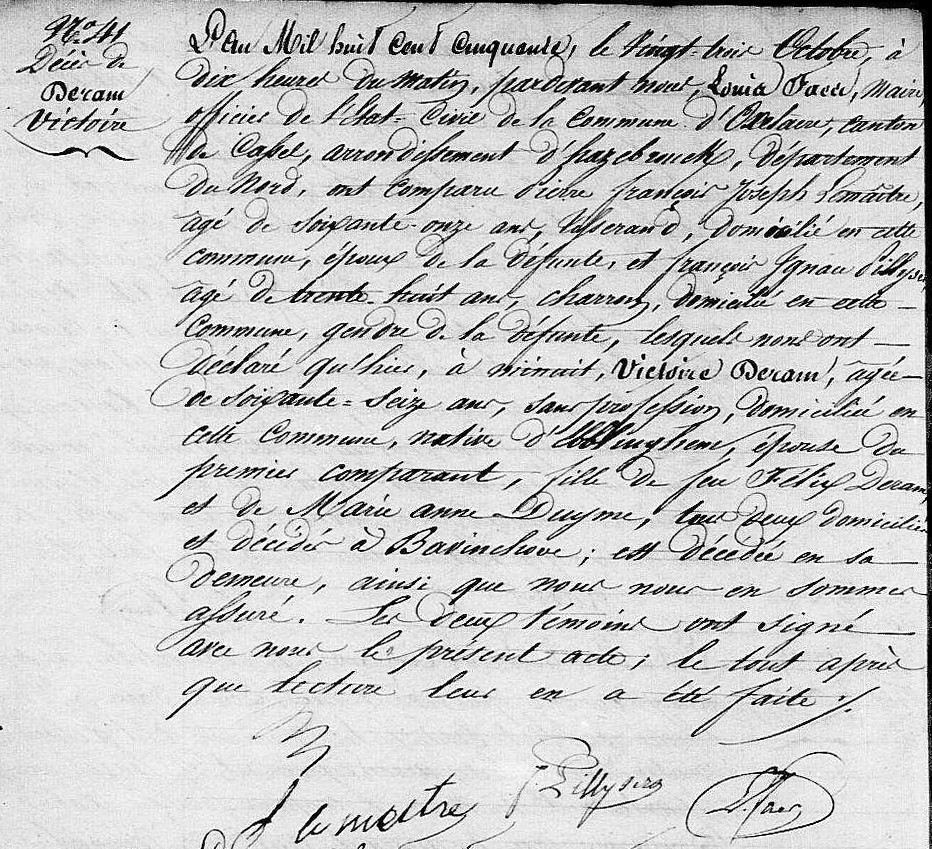 N.º 41
Décès de
Deram
Victoire
L'an Mil huit cent cinquante, le vingt-trois Octobre, à
dix heures du matin, pardevant nous, Louis Faes, Maire,
officier de l'Etat-Civil de la commune d'Oxelaere, canton
de Cassel, arrondissement d'hazebrouck, département
du Nord, ont comparu Pierre françois Joseph Lemaître,
agé de soixante-onze ans, tisserand, domicilié en cette
commune, époux de la défunte, et françois Ignace Pillyser,
agé de trente-huit ans, charron, domicilié en cette
commune, gendre de la défunte, lesquels nous ont
déclaré qu'hier, à minuit, Victoire Deram, agée
de soixante-seize ans, sans profession, domiciliée en
cette commune, native d', épouse du
premier comparant, fille de feu Félix Deram,
et de Marie anne Duyme, tous deux domiciliés
et décédés à Bavinchove; est décédée en sa
demeure, ainsi que nous nous en sommes
assuré. Les deux témoins ont signé
avec nous le présent acte; le tout après
que lecture leur en a été faite ./.
lemaitre
Pillyser
L. Faes